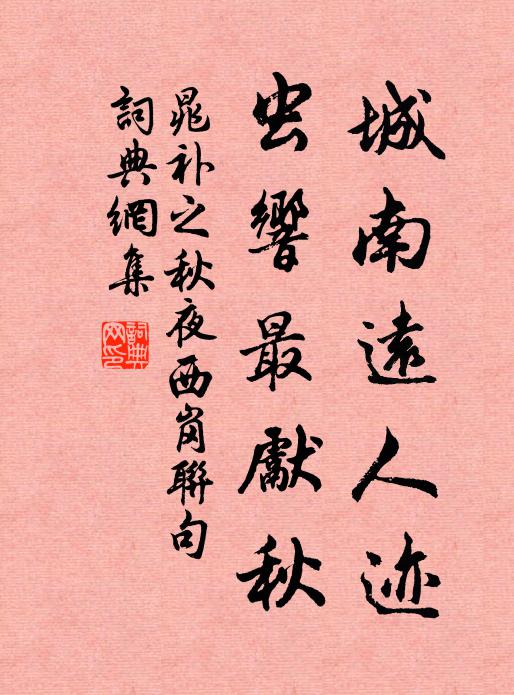 城南遠人迹
虫響最獻秋
晁补之秋夜西岗聯句
詞典網集
詞典网印